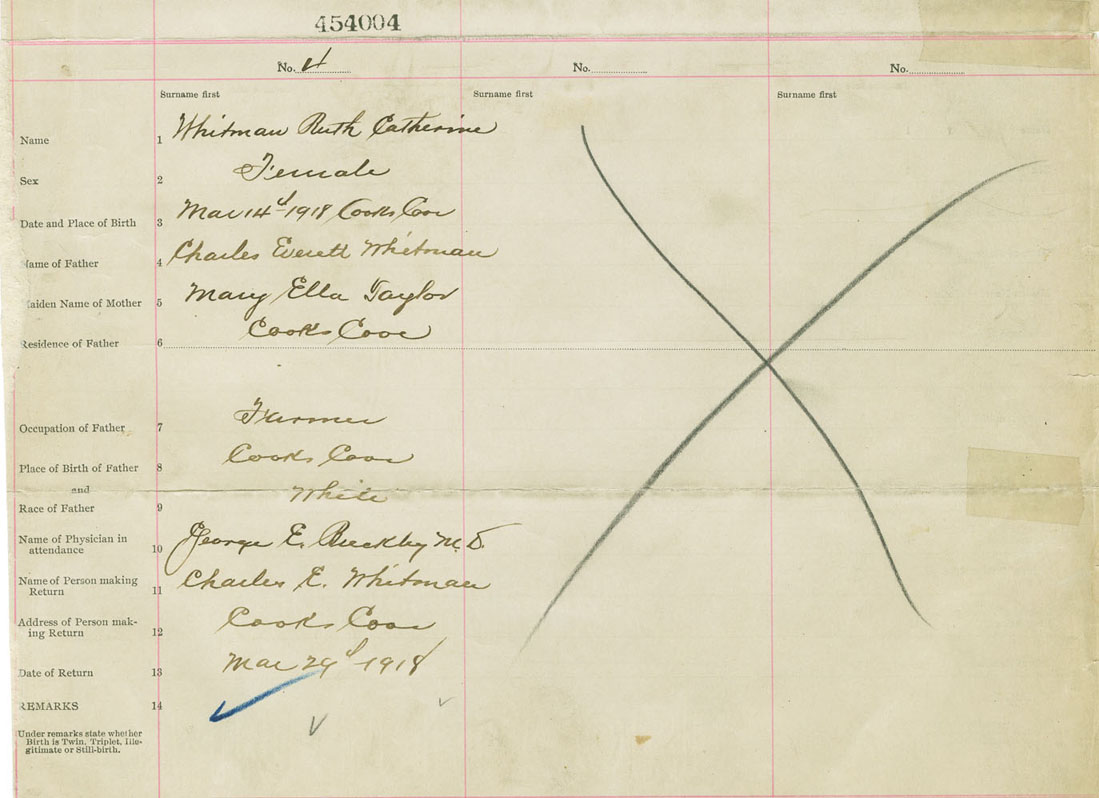 454004
No. 4 No. No.
Surname first Surname first Surname first
Name 1 Whitman Ruth Catherine
Sex 2 Female
Date and Place of Birth 3 Mar 14th 1918 Cooks Cove
Name of Father 4 Charles Everett Whitman
Maiden Name of Mother 5 Mary Ella Taylor
Residence of Father 6 Cooks Cove
Occupation of Father 7 Farmer
Place of Birth of Father 8 Cooks Cove
and
Race of Father 9 White
Name of Physician in
attendance 10 George E. Buckley M.D.
Name of Person making
Return 11 Charles E. Whitman
Address of Person mak-
ing Return 12 Cooks Cove
Date of Return 13 Mar 29 1918
REMARKS 14
Under remarks state whether
Birth is Twin, Triplet, Ille-
gitimate or Still-birth.